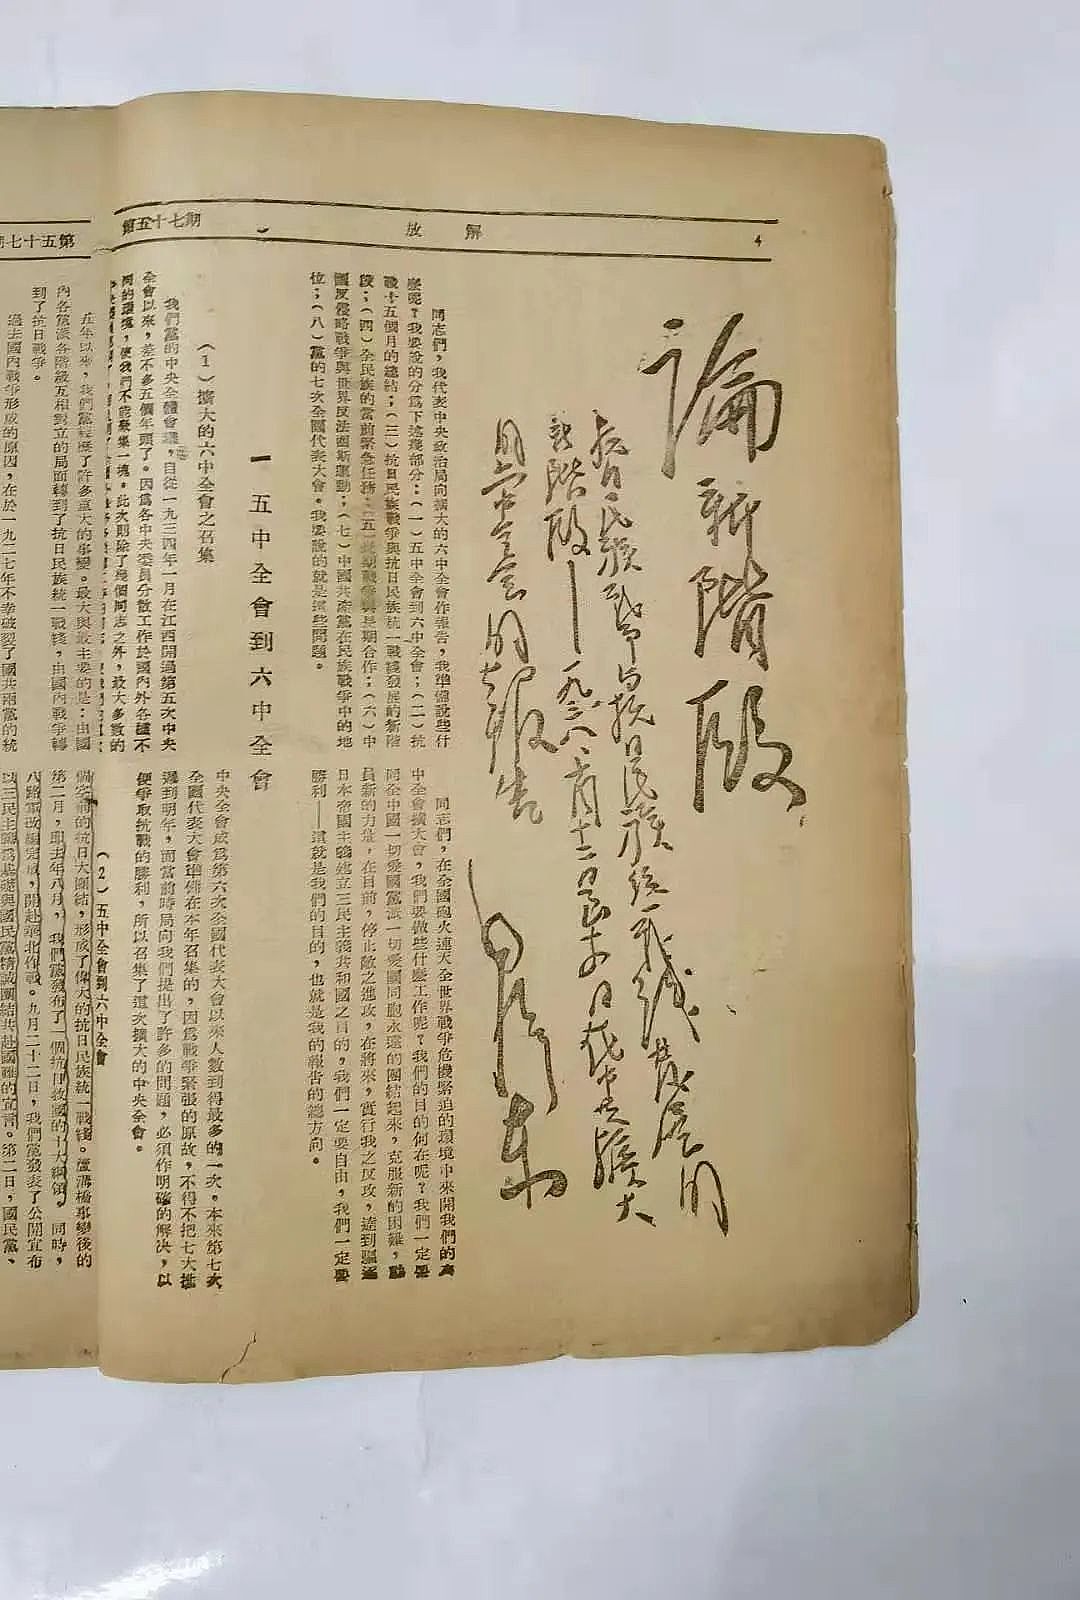 4
解放
第五十七期
論新階段
抗日民族戰爭与抗日民族統一戰線發展的
新階段——一九三八、十月十二日至十四日在中共擴大
的六中全會的報告
毛澤東
同志們，我代表中央政治局向擴大的六中全會作報告，我準備說些什
麼呢？我要說的分爲下述幾部分：（一）五中全會到六中全會；（二）抗
戰十五個月的總結；（三）抗日民族戰爭與抗日民族統一戰綫發展的新階
段；（四）全民族的當前緊急任務；（五）長期戰爭與長期合作；（六）中
國反侵略戰爭與世界反法西斯運動；（七）中國共產黨在民族戰爭中的地
位；（八）黨的七次全國代表大會。我要說的就是這些問題。
一 五中全會到六中全會
（1）擴大的六中全會之召集
我們黨的中央全體會議，自從一九三四年一月在江西開過第五次中央
全會以來，差不多五個年頭了。因爲各中央委員分散工作於國內外各種不
同的環境，使我們不能聚集一塊。此次則除了幾個同志之外，最大多數的
同志們，在全國砲火連天全世界戰爭危機緊迫的環境中來開我們的六
中全會擴大會，我們要做些什麼工作呢？我們的目的何在呢？我們一定要
同全中國一切愛國黨派一切愛國同胞永遠的團結起來，克服新的困難，動
員新的力量，在目前，停止敵之進攻，在將來，實行我之反攻，達到驅逐
日本帝國主義建立三民主義共和國之目的，我們一定要自由，我們一定要
勝利——這就是我們的目的，也就是我的報告的總方向。
中央全會成爲第六次全國代表大會以來人數到得最多的一次。本來第七次
全國代表大會準備在本年召集的，因爲戰爭緊張的原故，不得不把七大推
遲到明年，而當前時局向我們提出了許多的問題，必須作明確的解決，以
便爭取抗戰的勝利，所以召集了這次擴大的中央全會。
（2）五中全會到六中全會
第五十七期
五年以來，我們黨經歷了許多重大的事變。最大與最主要的是：由國
內各黨派各階級互相對立的局面轉到了抗日民族統一戰綫，由國內戰爭轉
到了抗日戰爭。
過去國內戰爭形成的原因，在於一九二七年不幸破裂了國共兩黨的統
個空前的抗日大團結，形成了偉大的抗日民族統一戰綫。蘆溝橋事變後的
第二月，即去年八月，我們黨發布了一個抗日救國的十大綱領。同時，
八路軍改編完成，開赴華北作戰。九月二十二日，我們黨發表了公開宣布
以三民主義爲基礎與國民黨精誠團結共赴國難的宣言。第二日，國民黨、